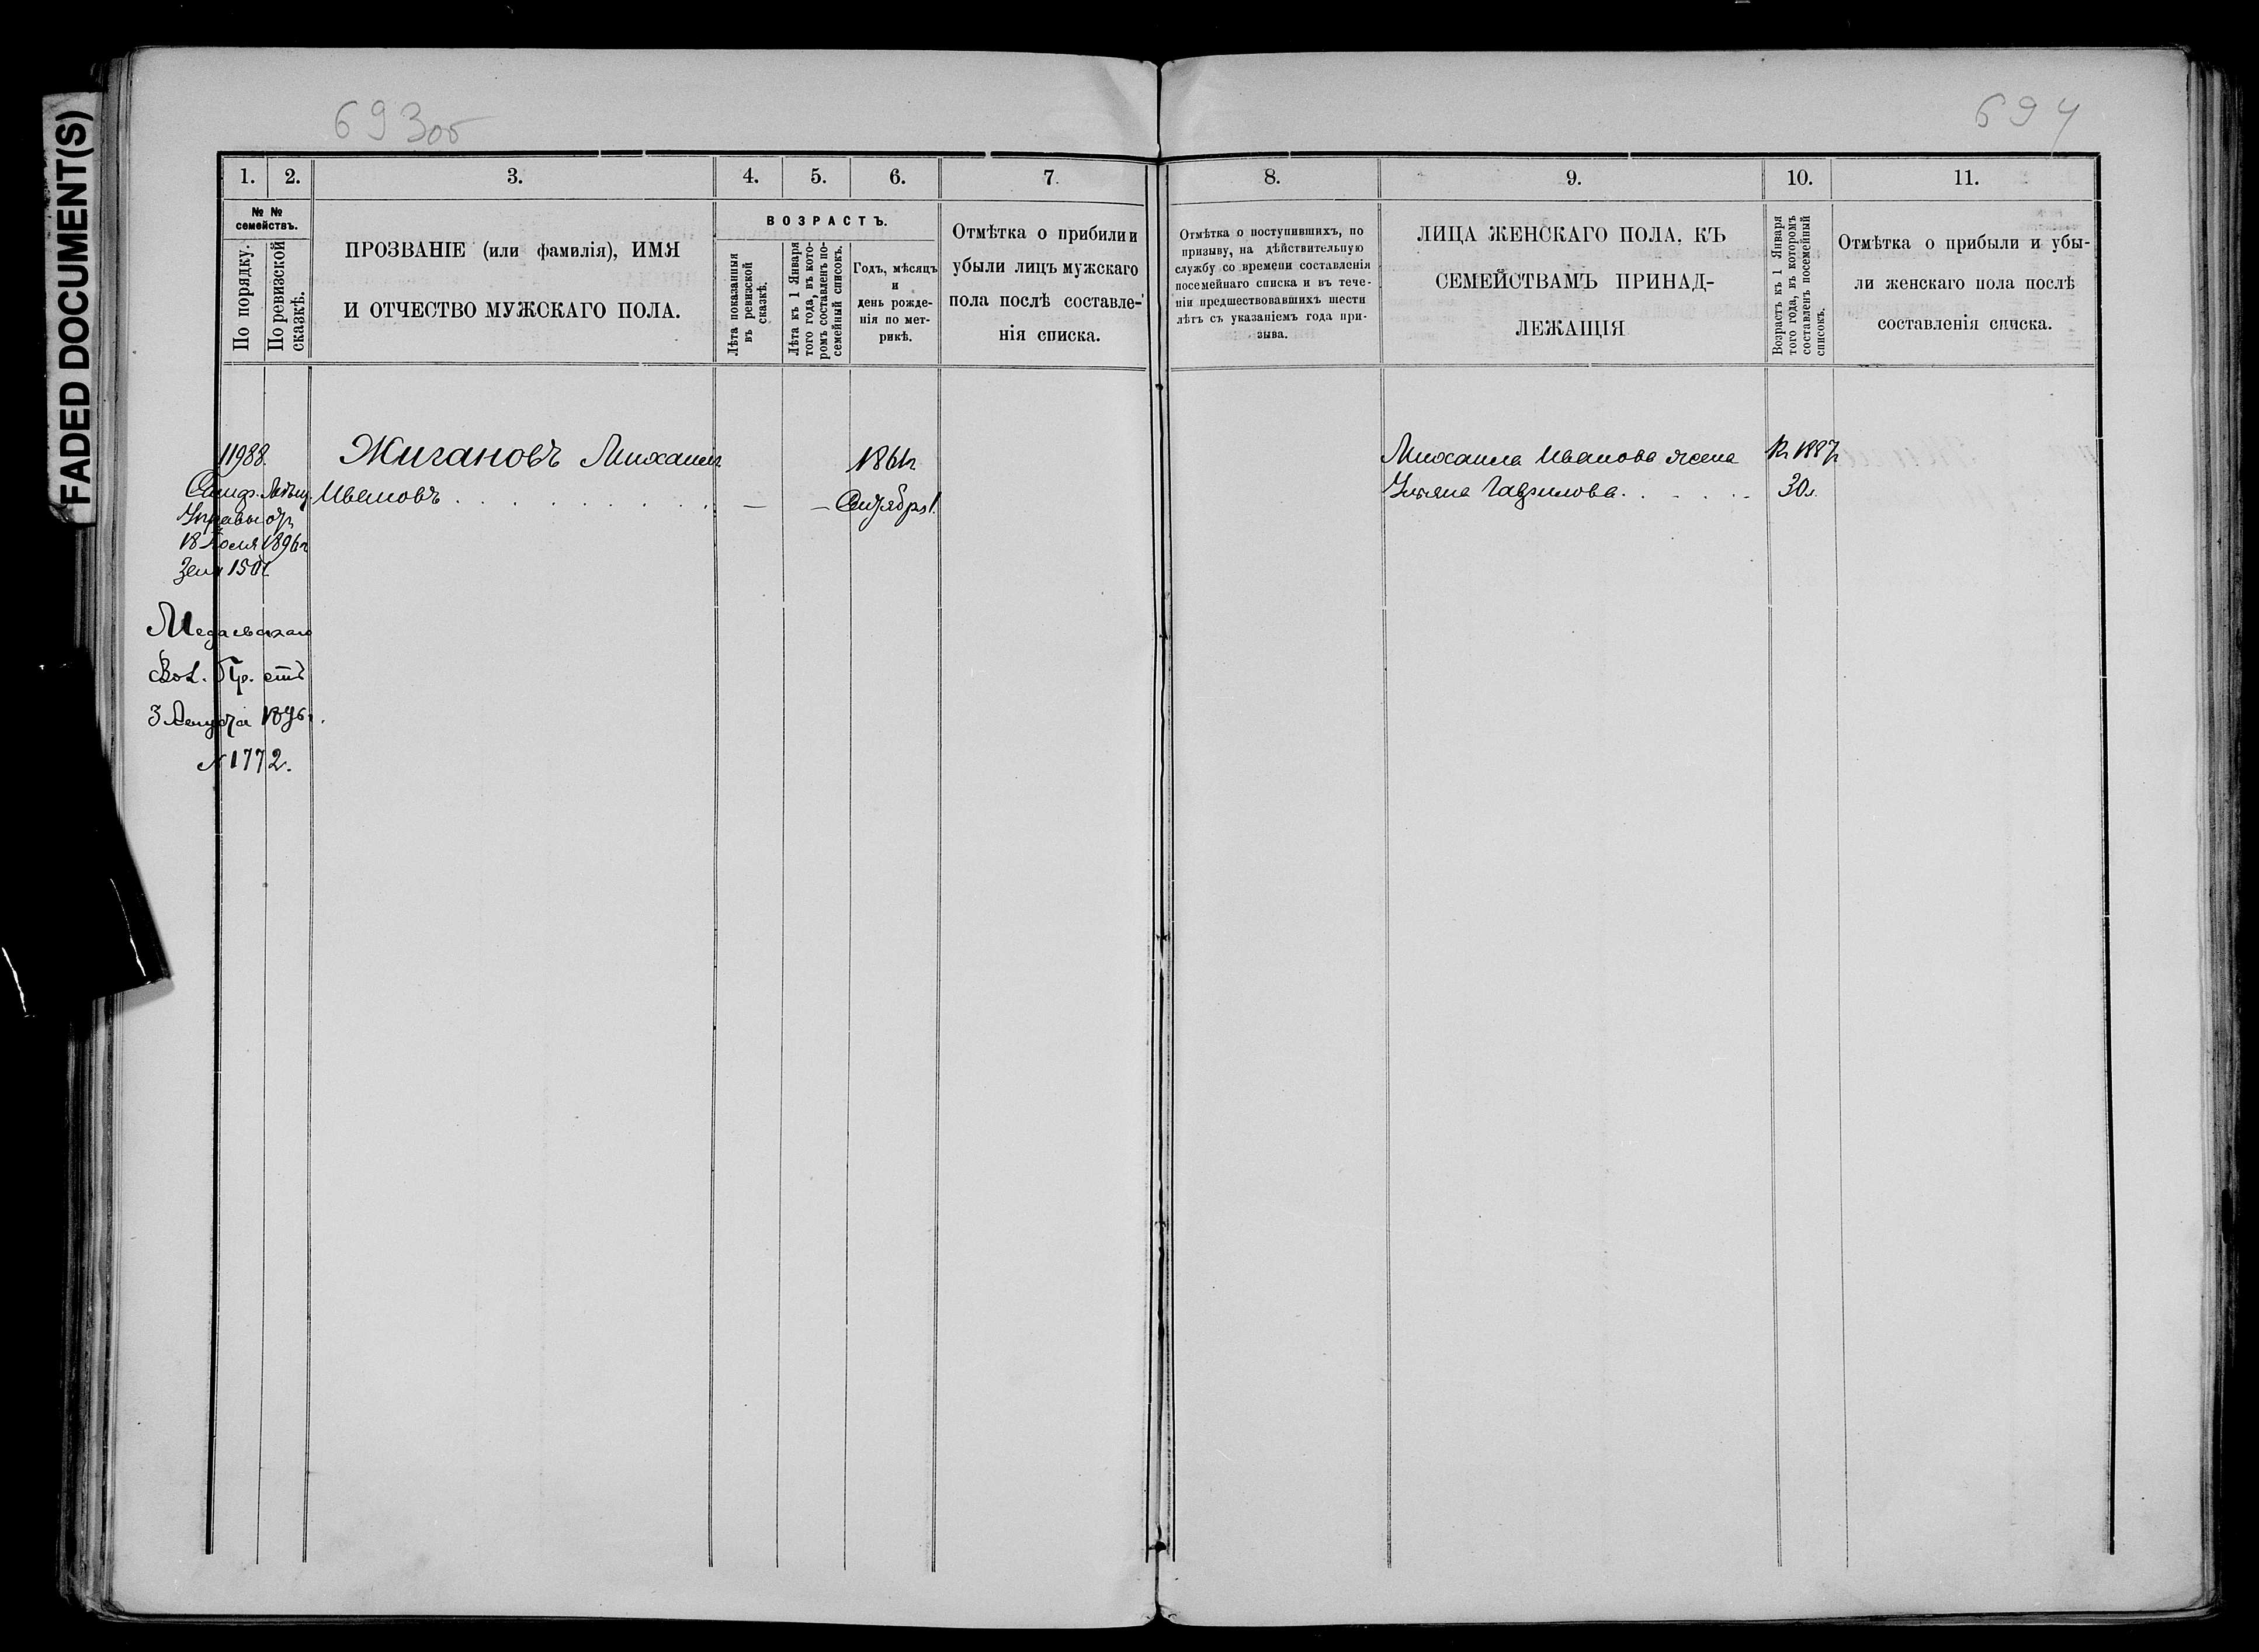 FADED DOCUMENT(S)
693об
694
1.
2.
3.
4.
5.
6.
7.
8.
9.
10.
11.
№ №
семействъ.
По порядку.
По ревизской
сказкѣ.
ПРОЗВАНІЕ (или фамилія), ИМЯ
И ОТЧЕСТВО МУЖСКАГО ПОЛА.
ВОЗРАСТЪ.
Лѣта показанныя
въ ревизской
сказкѣ.
Лѣта къ 1 Января
того года, въ кото-
ромъ составленъ по-
семейный списокъ.
Годъ, мѣсяцъ
и
день рожде-
нія по мет-
рикѣ.
Отмѣтка о прибыли и
убыли лицъ мужскаго
пола послѣ составле-
нія списка.
Отмѣтка о поступившихъ, по
призыву, на дѣйствительную
службу со времени составленія
посемейнаго списка и въ тече-
ніи предшествовавшихъ шести
лѣтъ съ указаніемъ года при-
зыва.
ЛИЦА ЖЕНСКАГО ПОЛА, КЪ
СЕМЕЙСТВАМЪ ПРИНАД-
ЛЕЖАЩІЯ
Возрастъ къ 1 Января
того года, въ которомъ
составленъ посемейный
списокъ.
Отмѣтка о прибыли и убы-
ли женскаго пола послѣ
составленія списка.
11988.
Жигановъ Михаилъ
Ивановъ
1861г
Октября 1.
Михаила Иванова жена
Ульяна Гаврилова.
1897г
30л.
Симф. Мѣщ.
Управы отъ
18 Іюля 1896г
1501
Вол. Пр. отъ
3 Августа 1896г.
№ 1772.